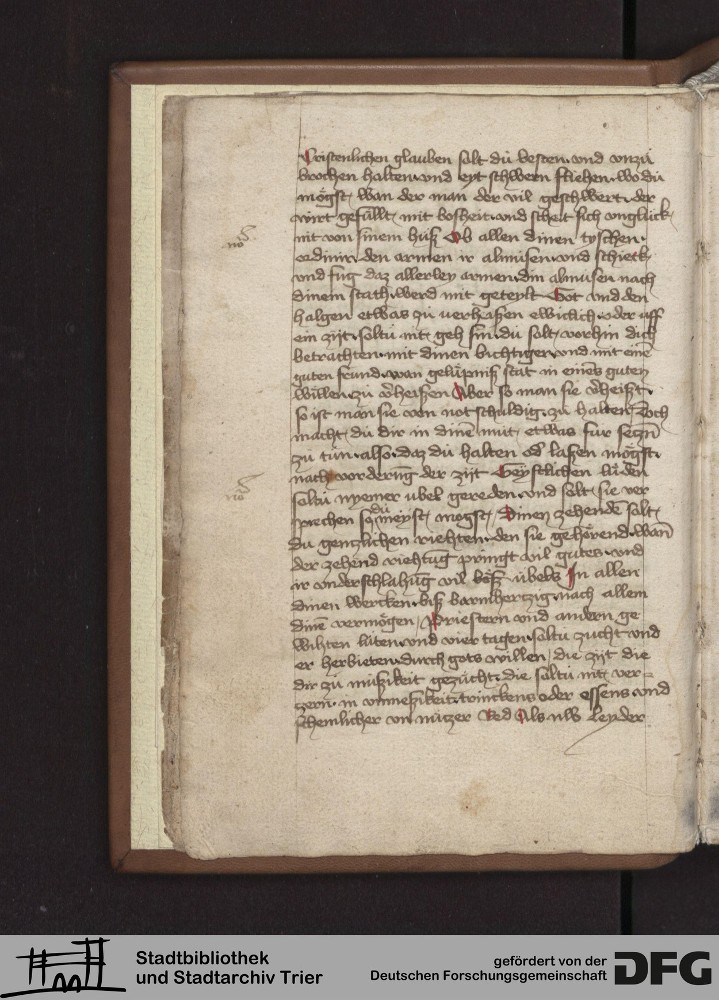 Cristenlichen glauben salt dü vesten vnd vnzü
brochen halten vnd eyt schwern fliehen wo du
mögst wan der man der vil geschwert der
wirt gefüllt mit bosheit vnd scheit sich vnglück
nit von sinem huß Ob allen dinen tyschen
ordinir den armen ir almüsen vnd schick
vnd fug daz allerley armen din almusen nach
dinem stath werd mit geteylt Got vnd den
halgen etwas zü verhaßen ewiclich oder uff
ein zijt soltü nit geh sin du salt vorhin dich
betrachten mit dinen bichtiger vnd mit eine
guten frund wan gelüpniß stat in eines guten
willen zü v̈heißen Aber so man sie v̈heißt
so ist man sie von not schuldig zu halten Doch
macht du dir in dinē müt etwas fur seczn̄
zü tün also daz dü halten od laßen mögst
nach vorderūg der zijt Geystlichen lüden
soltü nyemer ubel gereden vnd salt sie ver
sprechen so dü meyst mogst Dinen zehendē salt
du genczlichen riehten den sie gehörend wan̄
der zehend riehtūg pringt vil gutes vnd
ir vnderschlahūg vil böß übels In allen
dinen wercken biß barmhertzig nach allem
dinē vermögen Priestern vnd andern ge
wihten lüten vnd vier tagen soltu zucht vnd
er herbieten durch gots willen die zijt die
dir zü müßikeit gezücht die saltü nit ver-
zern in vnmeßikeit trinckens oder essens vnd
schemlicher vn nützer Red Als nw leyder
no
no
Stadtbibliothek
und Stadtarchiv Trier
gefördert von der
Deutschen Forschungsgemeinschaft
DFG